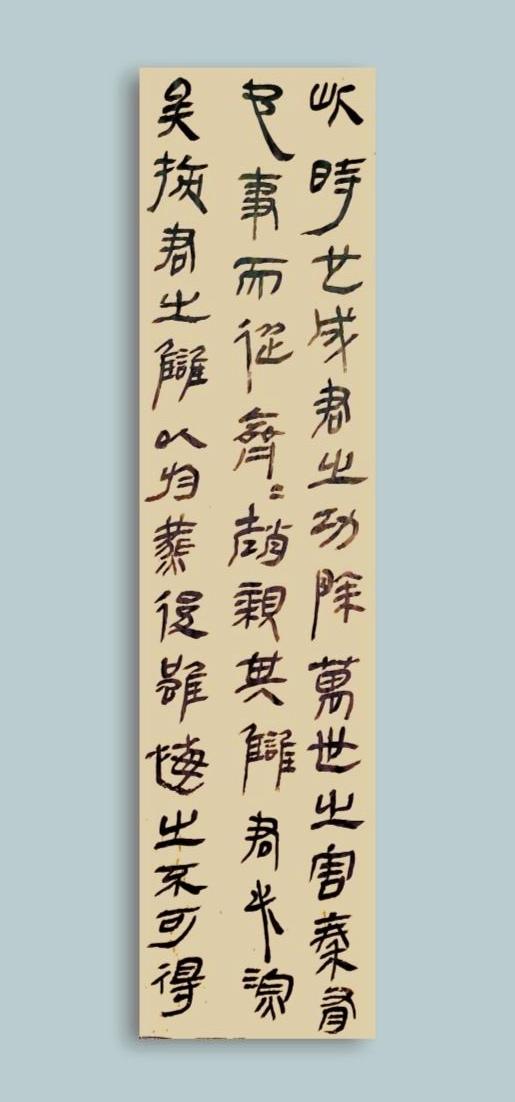 此時也成君之功除萬世之害秦有
它事而從齊=趙親其讎君必深
矣挾君之讎以於燕後雖悔之不可得